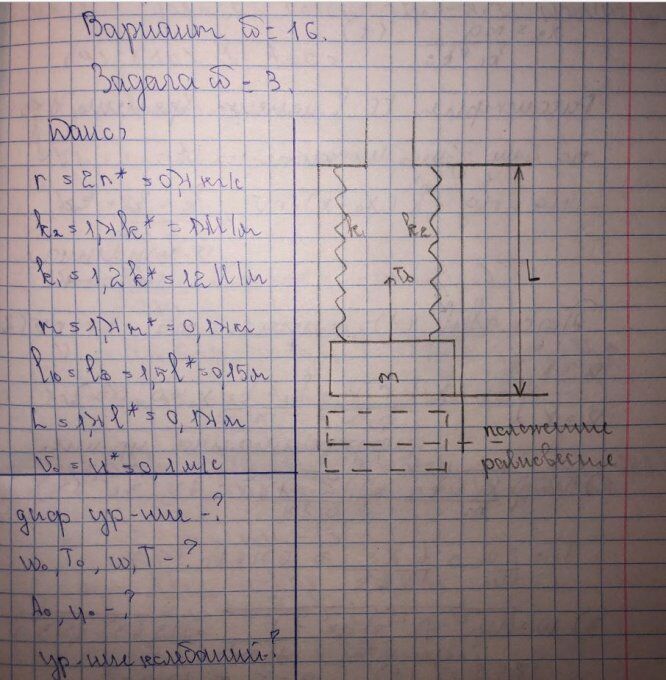 Вариант № = 16.
Задача № = 3.
Дано:
r = 2r* = 0,4 кг/с
k₂ = 1,4k* = 14 Н/м
k₁ = 1,2k* = 12 Н/м
m = 1,4m* = 0,14 кг
l₁₀ = l₂₀ = 1,5l* = 0,15 м
L = 1,4l* = 0,14 м
V₀ = u* = 0,1 м/с
диф ур-ние - ?
ω₀, T₀, ω, T - ?
A₀, φ₀ - ?
ур-ние колебаний - ?
k₁
k₂
L
m
положение
равновесие